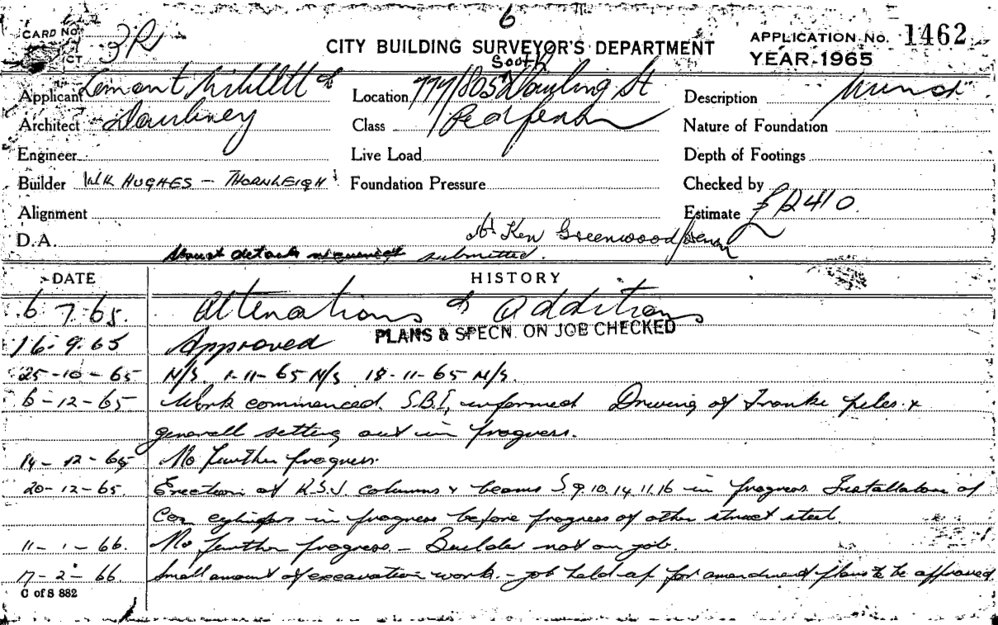 6
CARD NO. 3R
CITY BUILDING SURVEYOR'S DEPARTMENT
APPLICATION No. 1462
YEAR 1965
Applicant Lemont
Location 779/805 South Dowling St
Description
Architect Daubney
Class
Nature of Foundation
Engineer
Live Load
Depth of Footings
Builder W.K HUGHES - THORNLEIGH
Foundation Pressure
Checked by
Alignment
Estimate £12410.
D.A.
Mr Ken Greenwood
Struct details submitted.
DATE
HISTORY
6.7.65. Alterations & additions
PLANS & SPECN. ON JOB CHECKED
16-9-65 Approved
25-10-65 N/S. 1-11-65 N/S 18-11-65 N/S.
6-12-65 Work commenced. S.B.I, informed Driving of Franki piles &
generall setting out in progress.
14-12-65 No further progress.
20-12-65 Erection of R.S.J columns & beams S 9.10.14.11.16 in progress Installation of
cylinders in progress before progress of other struct steel.
11-1-66. No further progress - Builder not on job.
7-2-66 Small amount of excavation work. - job held up for amendment plans to be approved.
C of S 882